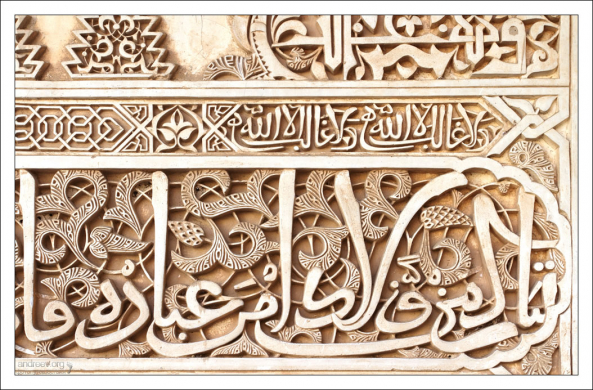 ولا غالب الا الله ولا غالب الا الله
تبارك من ولاك امر عباده فا
andreev.org